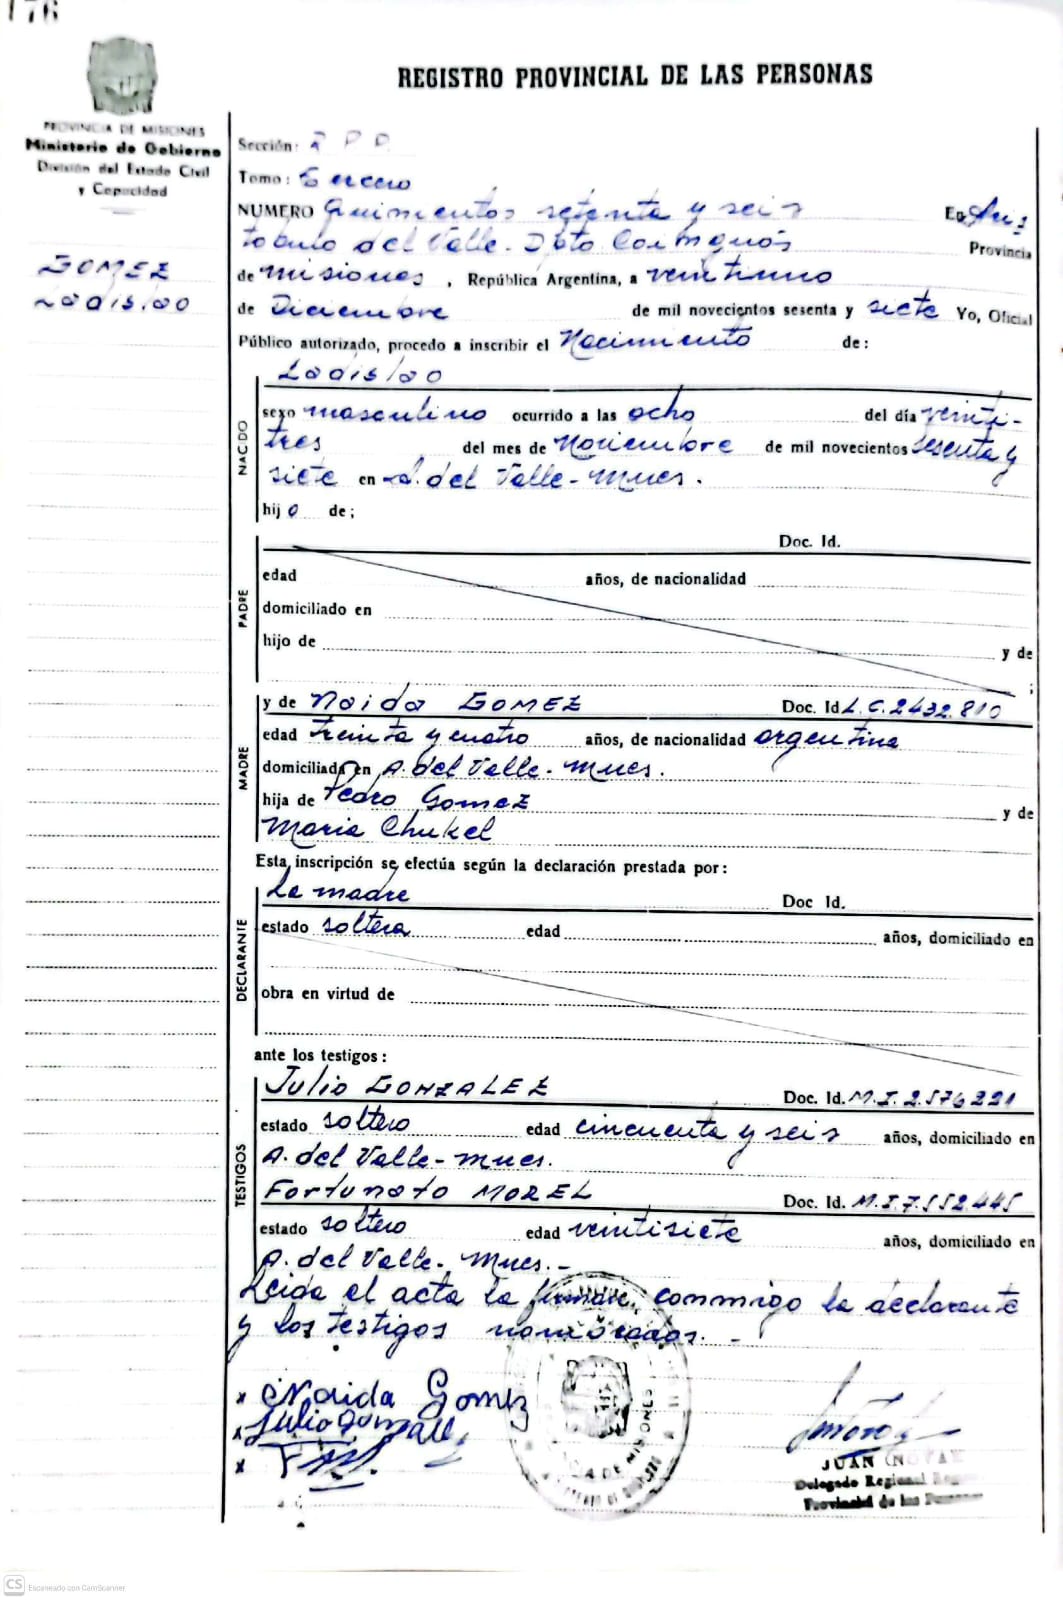 176
REGISTRO PROVINCIAL DE LAS PERSONAS
PROVINCIA DE MISIONES
Ministerio de Gobierno
División del Estado Civil
y Capacidad
GOMEZ
Ladislao
Sección: R P P
Tomo: Tercero
NUMERO Quinientos setenta y seis En Aris
tobulo del Valle. Dpto Cainguás Provincia
de misiones, República Argentina, a veintiuno
de Diciembre de mil novecientos sesenta y siete Yo, Oficial
Público autorizado, procedo a inscribir el Nacimiento de:
NACIDO
Ladislao
sexo masculino ocurrido a las ocho del día veinti-
tres del mes de Noviembre de mil novecientos sesenta y
siete en A. del Valle - Mnes.
hijo de;
PADRE
Doc. Id.
edad años, de nacionalidad
domiciliado en
hijo de y de
;
MADRE
y de Naida GOMEZ Doc. Id L.C. 2432.810
edad treinta y cuatro años, de nacionalidad argentina
domiciliada en A. del Valle - Mnes.
hija de Pedro Gomez y de
Maria Chukel
Esta inscripción se efectúa según la declaración prestada por:
DECLARANTE
La madre Doc Id.
estado soltera edad años, domiciliado en
obra en virtud de
ante los testigos:
TESTIGOS
Julio GONZALEZ Doc. Id. M.I. 2.576.221
estado soltero edad cincuenta y seis años, domiciliado en
A. del Valle - Mnes.
Fortunato MOREL Doc. Id. M.I. 7.552.445
estado soltero edad veintisiete años, domiciliado en
A. del Valle. Mnes. -
Leida el acta la firman conmigo la declarante
y los testigos nombrados. -
x Naida Gomez
x Julio Gonzalez
x
JUAN
Delegado Regional
Provincial de las Personas
CS Escaneado con CamScanner